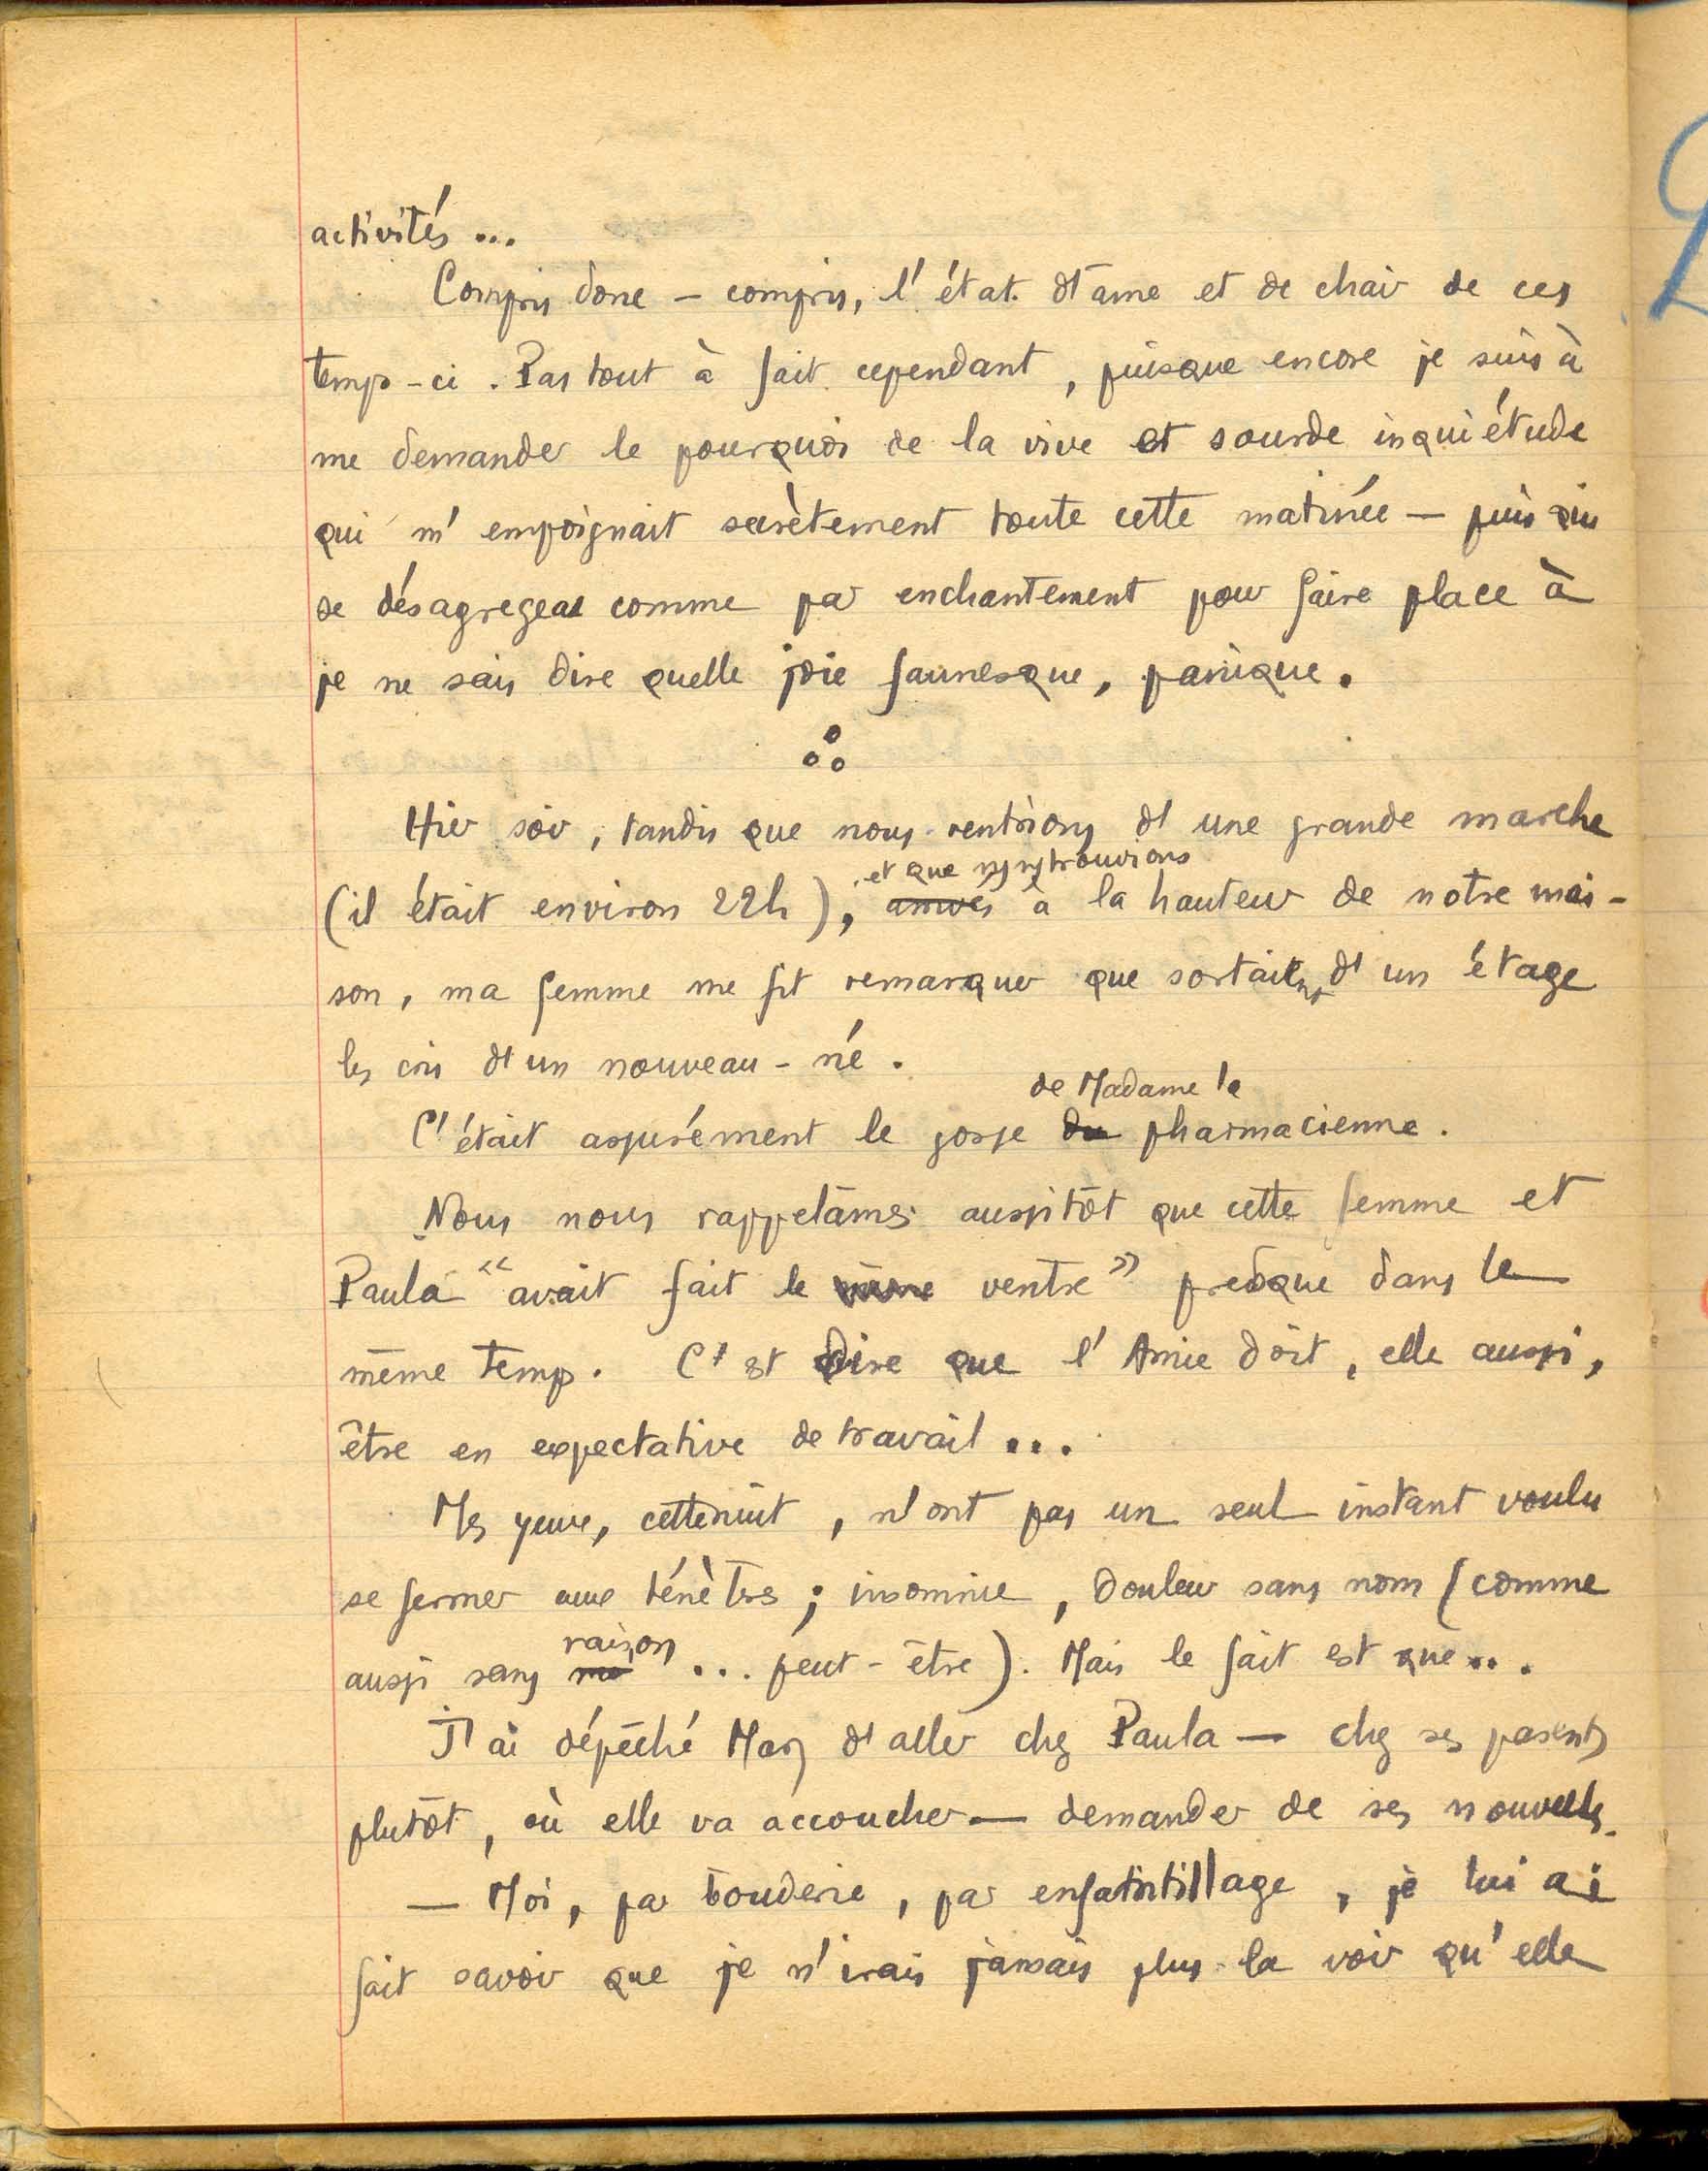 activités ...
Compris donc – compris, l'état d'âme et de chair de ces
temps-ci. Pas tout à fait cependant, puisque encore je suis à
me demander le pourquoi de la vive et sourde inquiétude
qui m'empoignait secrètement toute cette matinée — puis qui
se désagregea comme par enchantement pour faire place à
je ne sais dire quelle joie faunesque, panique.
Hier soir, tandis que nous rentrions d'une grande marche
et que ns ns trouvions
(il était environ 22h), arrivés à la hauteur de notre mai-
son, ma femme me fit remarquer que sortaient d'un étage
les cris d'un nouveau-né.
de Madame la
C'était assurément le gosse du pharmacienne.
Nous nous rappelâmes aussitôt que cette femme et
Paula "avait fait le même ventre" presque dans le
même temps. C'est dire que l'Amie doit, elle aussi,
être en expectative de travail ...
Mes yeux, cette nuit, n'ont pas un seul instant voulu
se fermer aux ténèbres ; insomnie, douleur sans nom (comme
raison
aussi sans ... peut-être). Mais le fait est que...
J'ai dépêché Mary d'aller chez Paula — chez ses parents
plutôt, où elle va accoucher — demander de ses nouvelles.
— Moi, par bouderie, par enfantillage, je lui ai
fait savoir que je n'irais jamais plus la voir qu'elle